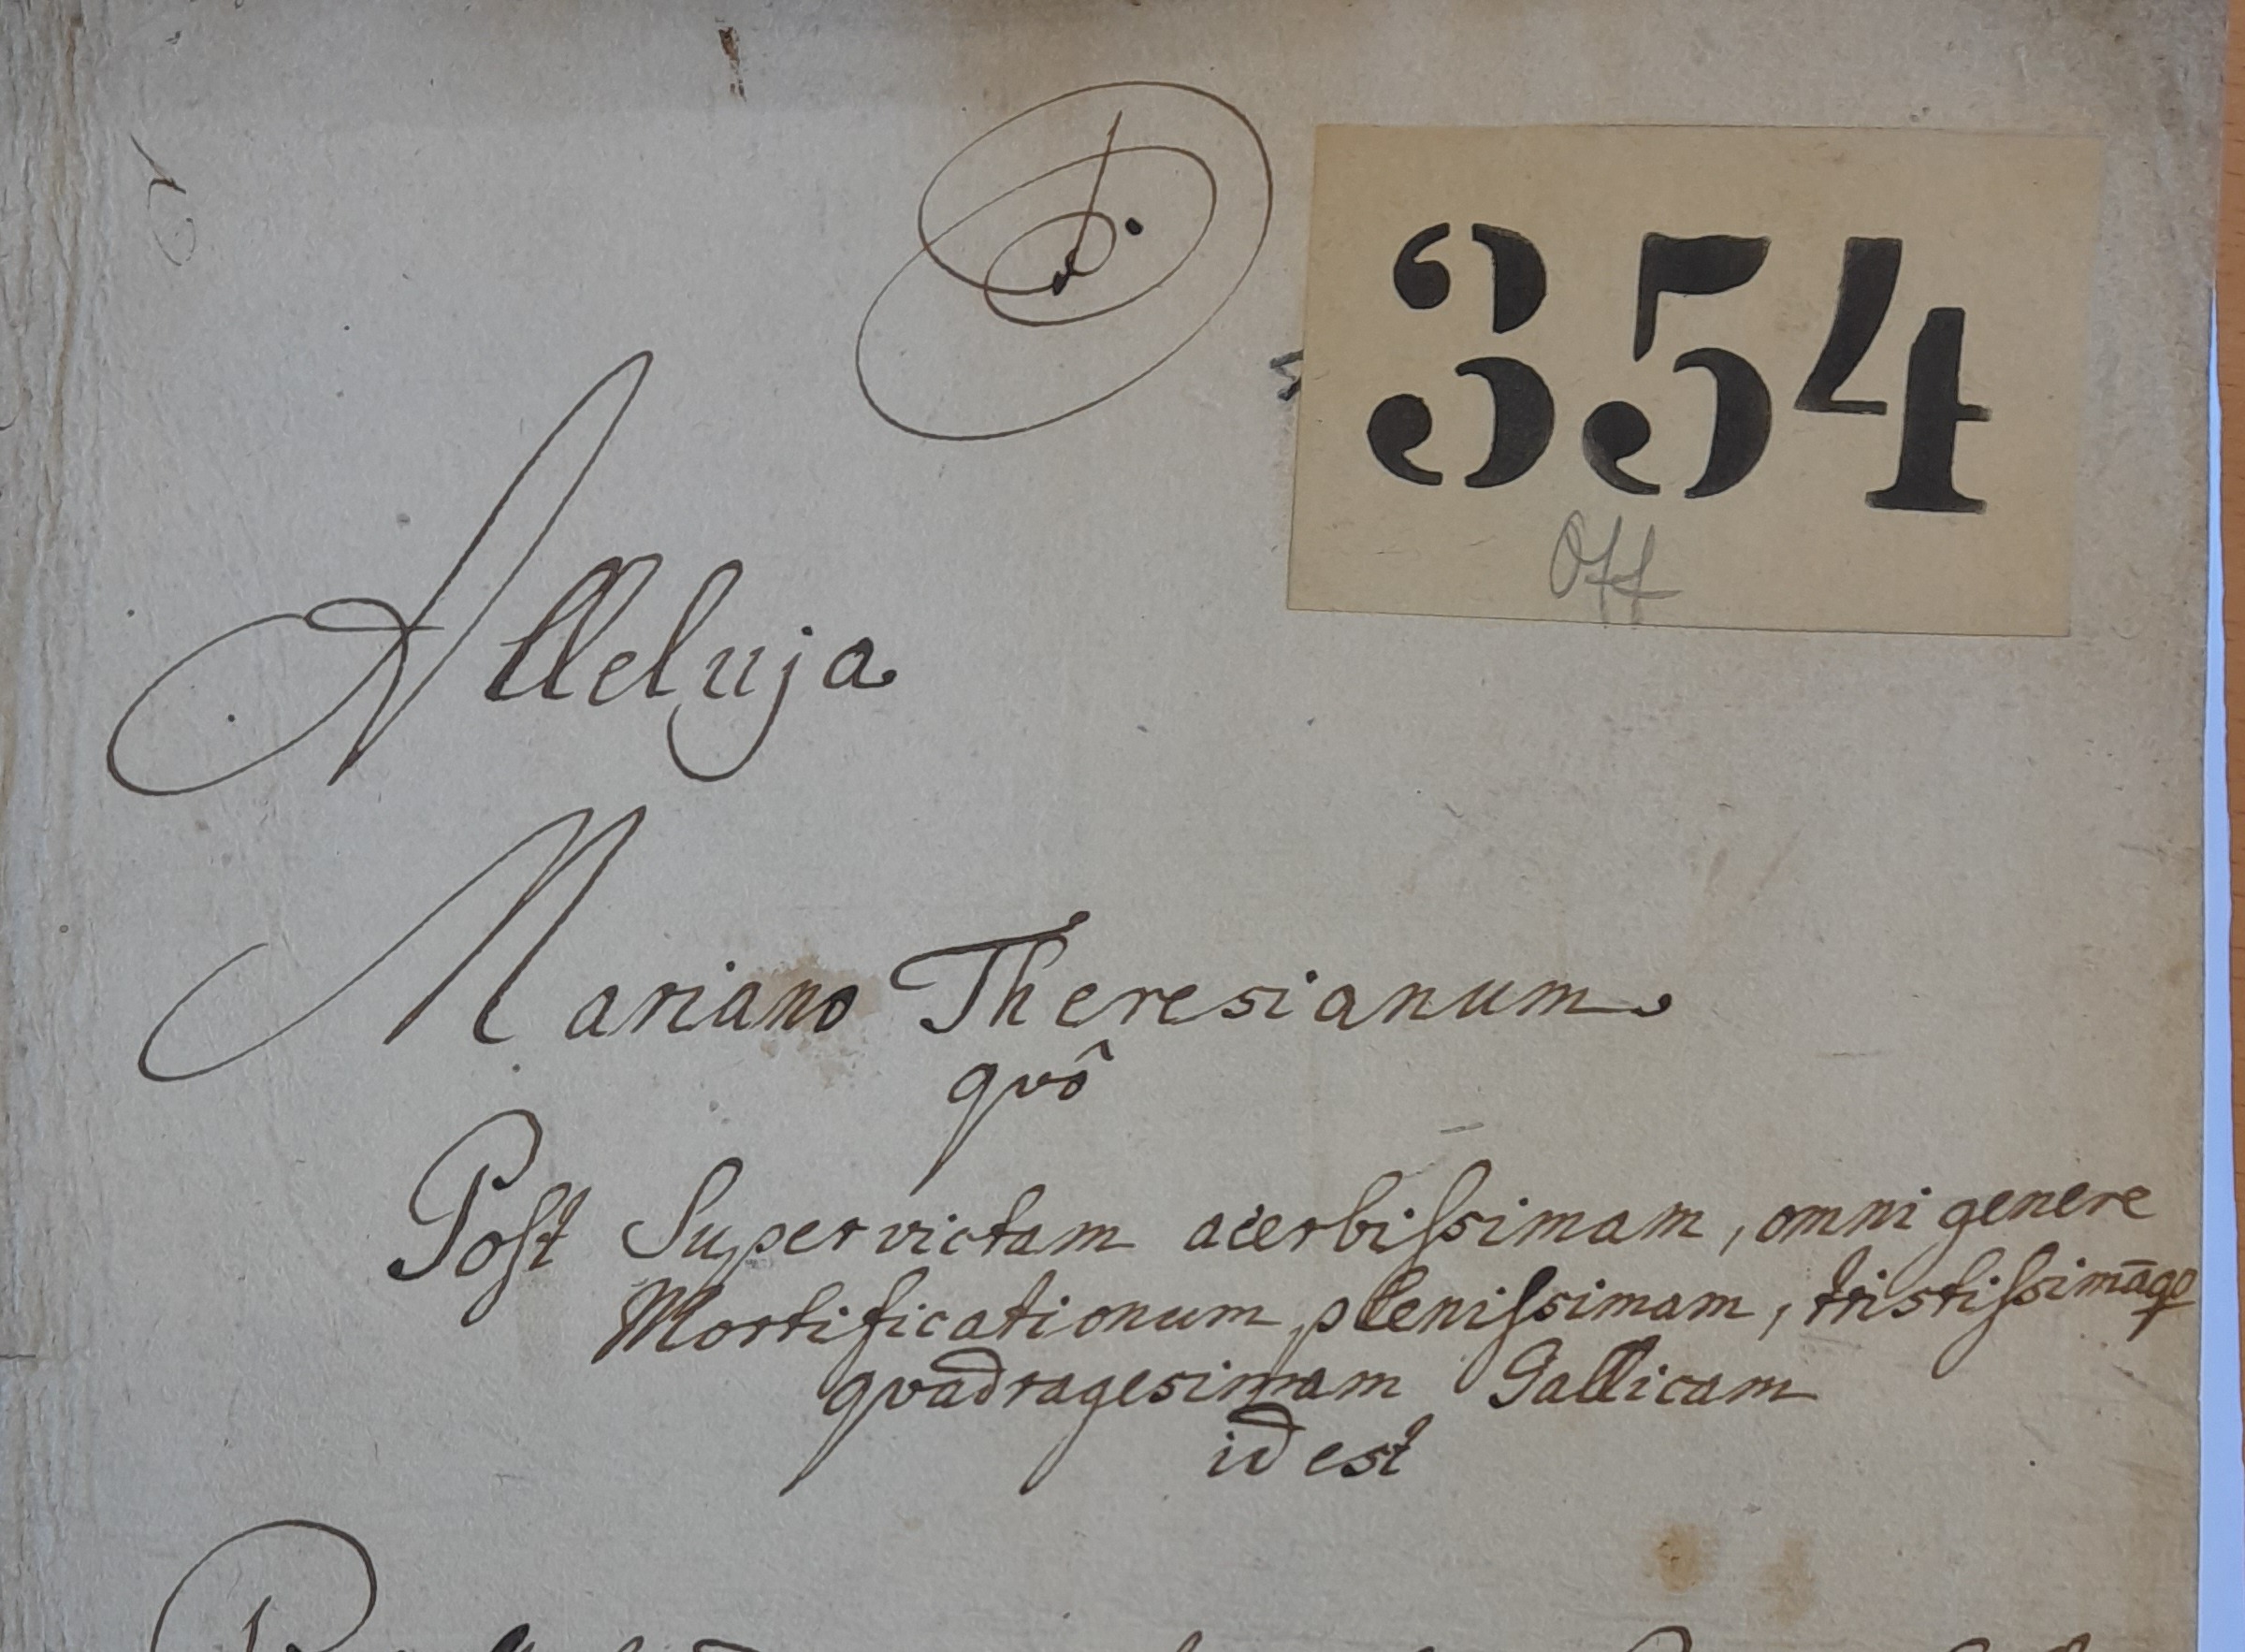 354
Off
Alleluja
Mariano Theresianum
qvô
Post Supervictam acerbissimam, omni genere
Mortificationum plenissimam, tristissimāqꝫ
qvadragesimam Gallicam
id est